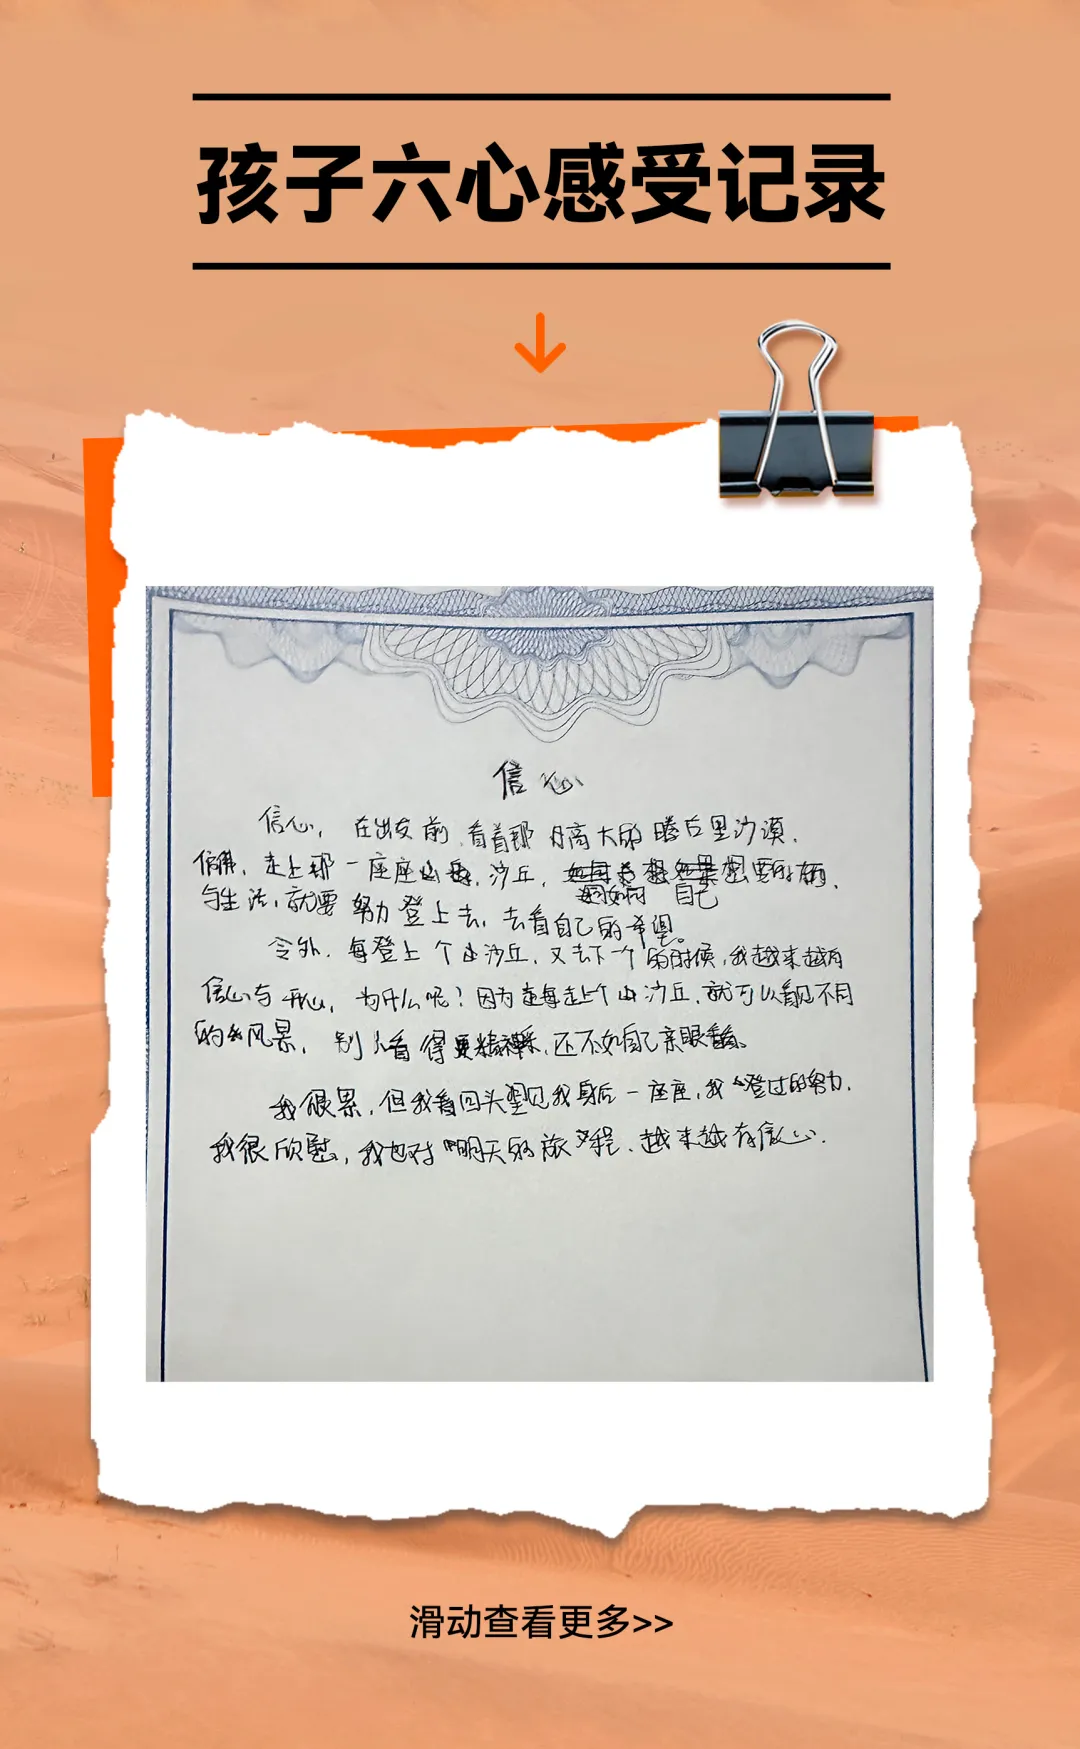 孩子六心感受记录
信心
信心，在出发前，看着那高大的腾后里沙漠，
走上那一座座山，沙丘，想要
如何 自己
与生活，就要努力登上去，去看自己的希望。
令外，每登上个山沙丘，又去下一个的时候，我越来越有
信心与开心，为什么呢？因为每走上个山沙丘，就可以看见不同
的风景，别人看得更精彩，还不如自己亲眼看。
我很累，但我看回头望见我身后一座座，我登过的努力，
我很欣慰，我也对明天的旅程，越来越有信心。
滑动查看更多>>